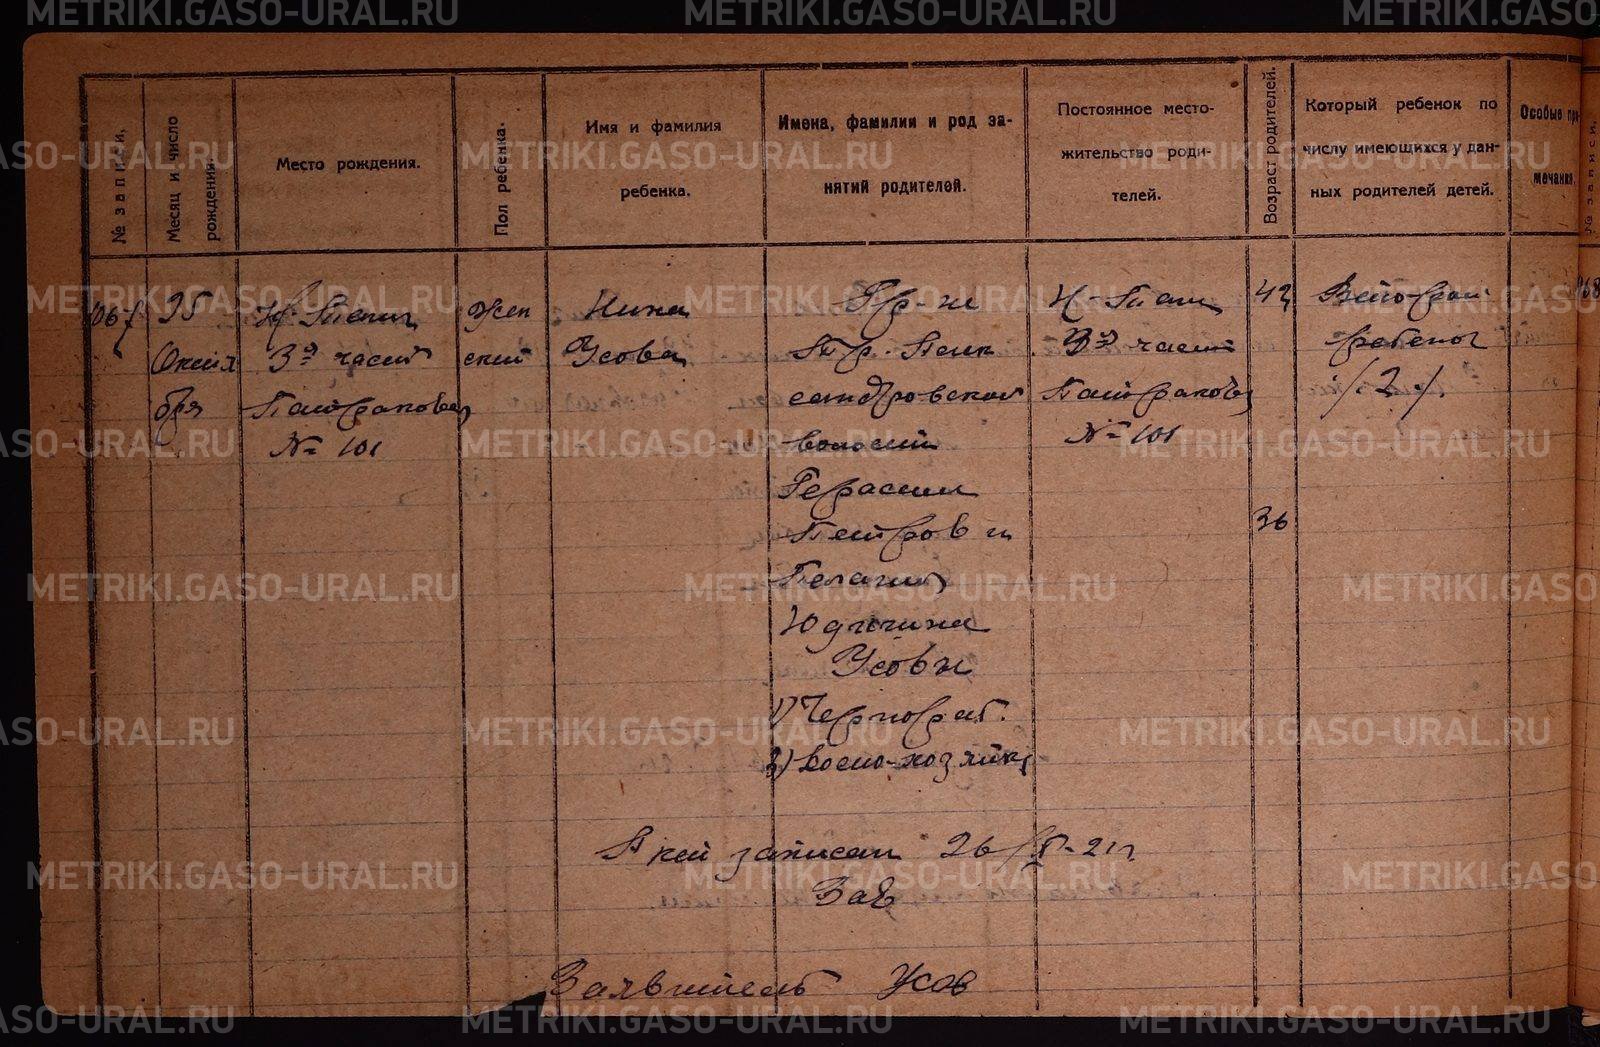 METRIKI.GASO-URAL.RU
№ записи.
Месяц и число рождения.
Место рождения.
Пол ребенка.
Имя и фамилия ребенка.
Имена, фамилии и род занятий родителей.
Постоянное место-
жительство роди-
телей.
Возраст родителей.
Который ребенок по
числу имеющихся у дан-
ных родителей детей.
Особые при
мечания
№ записи,
1067
25
Октя
бря
Н-Тагил
3я часть
№ 101
Жен
ский
Нина
Усова
Гр-н
волости
Герасим
Петров и
Пелагия
Усовы
1) Чернораб.
2) Домо-хозяйка
Н-Таги
3я часть
№ 101
42
36
ребенок
/2/.
Акт записан 26/X-21г.
Зав
Заявитель Усов